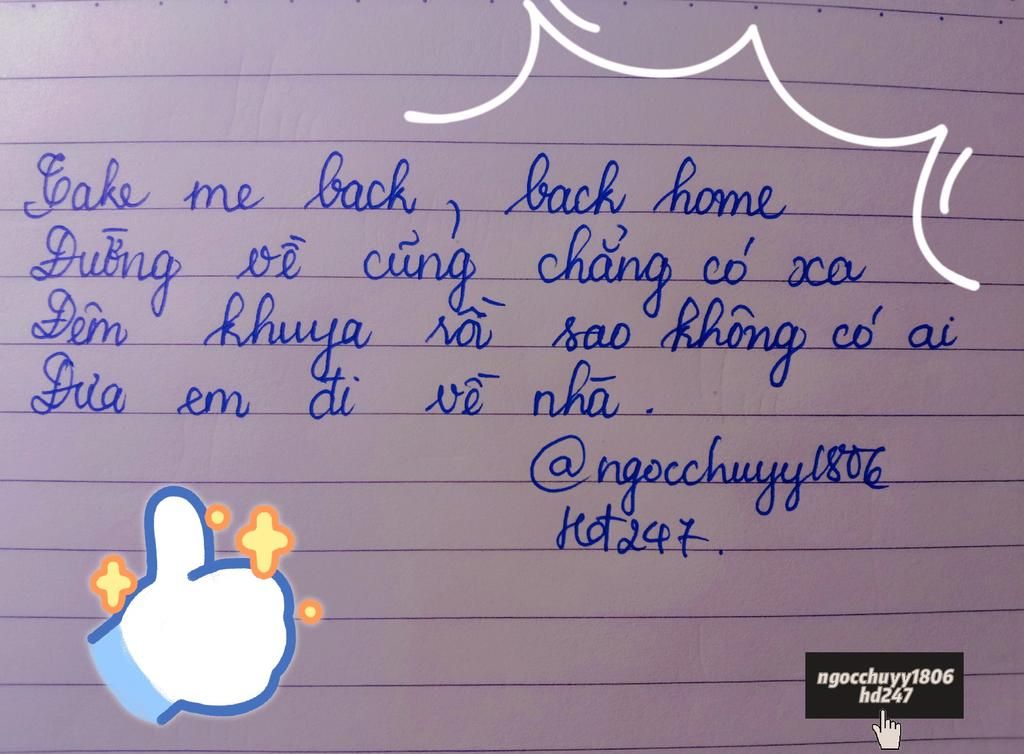 Take me back, back home
Đường về cũng chẳng có xa
Đêm khuya rồi sao không có ai
Đưa em đi về nhà.
@ngocchuyy1806
Hot247.
ngocchuyy1806
hd247